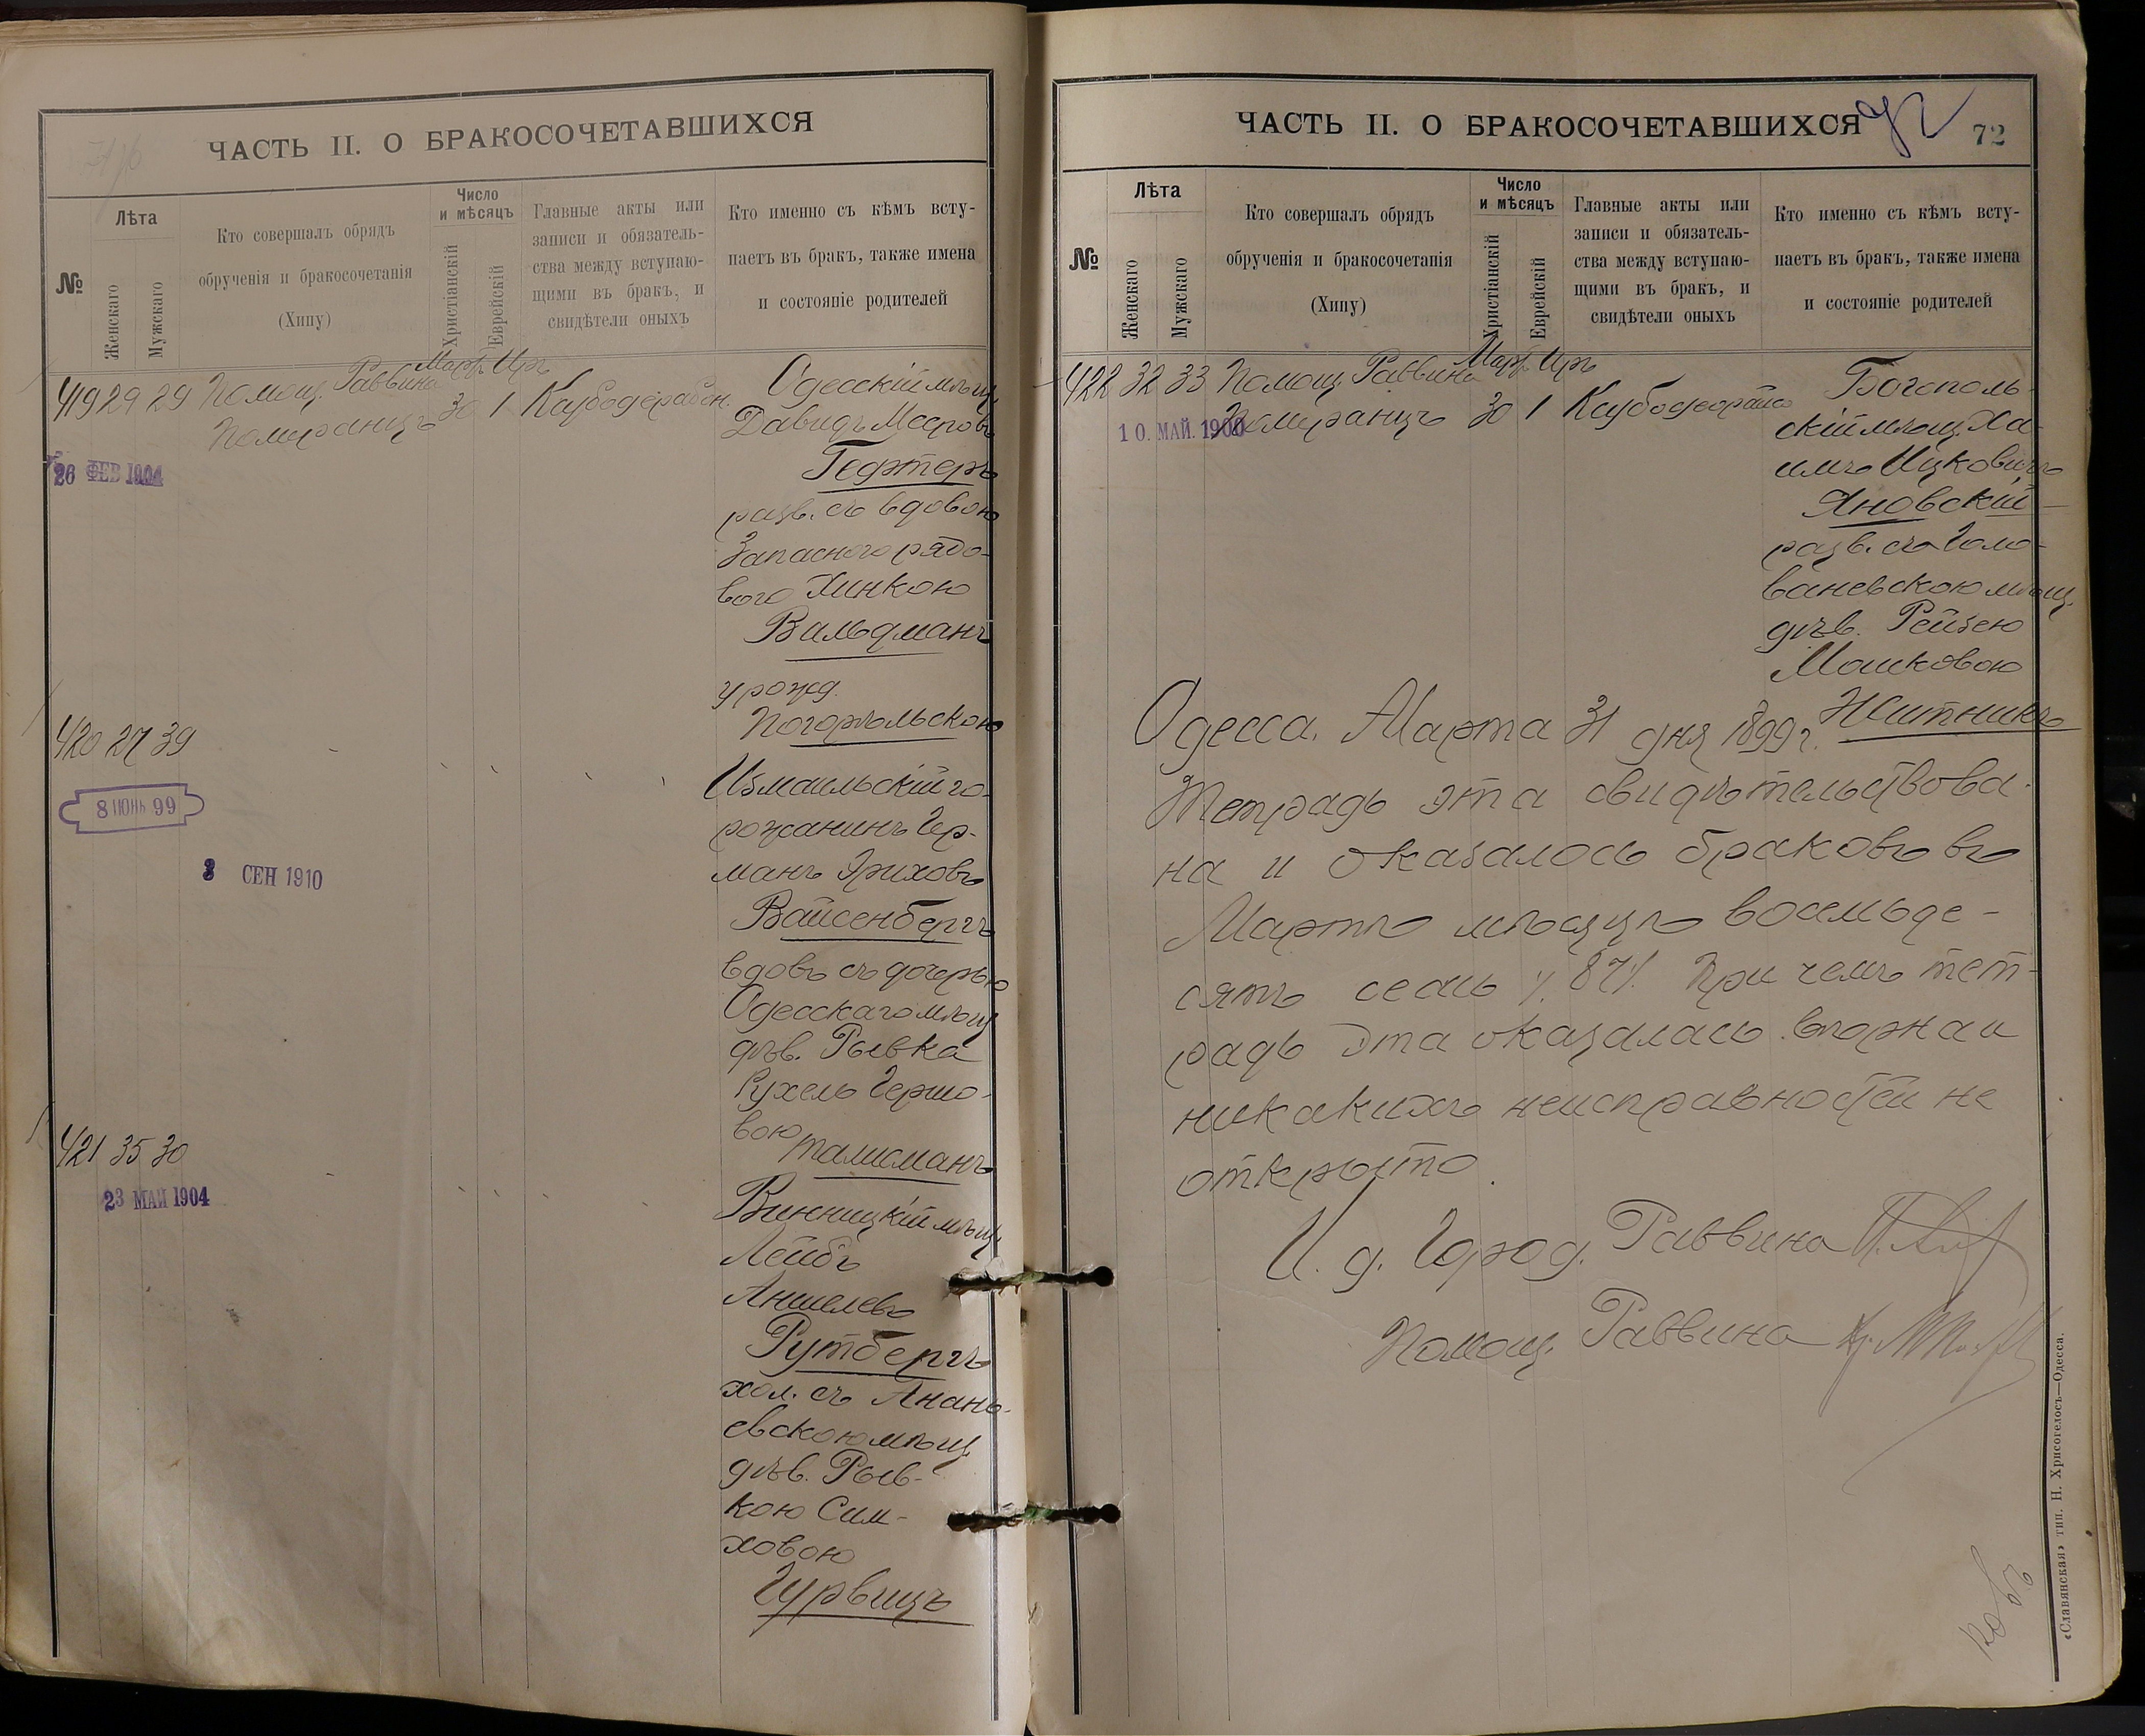 ЧАСТЬ II. О БРАКОСОЧЕТАВШИХСЯ
№
Лѣта
Женскаго
Мужскаго
Кто совершалъ обрядъ
обрученія и бракосочетанія
(Хипу)
Число
и мѣсяцъ
Христіанскій
Еврейскій
Главные акты или
записи и обязатель-
ства между вступаю-
щими въ бракъ, и
свидѣтели оныхъ
Кто именно съ кѣмъ всту-
паетъ въ бракъ, также имена
и состояніе родителей
419 29 29 Помощ. Раввина
Померанцъ
Март. Ир
30 1
26 ФЕВ 1904
Одесскій мѣщ.
Давидъ Мееровъ
Гефтеръ
разв. съ вдовою
Запасного рядо-
вого Хинкою
Вальдманъ
урожд.
Погорѣльскою
420 27 39
8 ІЮНЬ 99
3 СЕН 1910
Измаильскій го-
рожанинъ Гер-
манъ Эриховъ
Вайсенбергъ
вдовъ съ дочерью
Одесскаго мѣщ
дѣв. Рывка
Рухель Гершо-
вою
Талисманъ
421 35 30
23 МАЙ 1904
Винницкій мѣщ.
Лейбъ
Аншелевъ
Рутбергъ
хол. съ Анань-
евскою мѣщ
дѣв. Рыв-
кою Сим-
ховою
Гурвицъ
ЧАСТЬ II. О БРАКОСОЧЕТАВШИХСЯ
72
№
Лѣта
Женскаго
Мужскаго
Кто совершалъ обрядъ
обрученія и бракосочетанія
(Хипу)
Число
и мѣсяцъ
Христіанскій
Еврейскій
Главные акты или
записи и обязатель-
ства между вступаю-
щими въ бракъ, и
свидѣтели оныхъ
Кто именно съ кѣмъ всту-
паетъ въ бракъ, также имена
и состояніе родителей
422 32 33 Помощ. Раввина
Померанцъ
Март. Ир
30 1
10. МАЙ. 1900
Богополь-
скій мѣщ. Ха-
имъ Ицковичъ
Яновскій
разв. съ Голо-
ваневскою мѣщ.
дѣв. Рейзею
Мошковою
Житникъ
Одесса. Марта 31 дня 1899 г.
Тетрадь эта свидѣтельствова-
на и оказалось браковъ въ
Мартѣ мѣсяцѣ восемьде-
сятъ семь /87/. При чемъ тет-
радь эта оказалась вѣрна и
никакихъ неисправностей не
открыто.
И. д. Город. Раввина
Помощ. Раввина
«Славянская» тип. Н. Хрисогелосъ—Одесса.